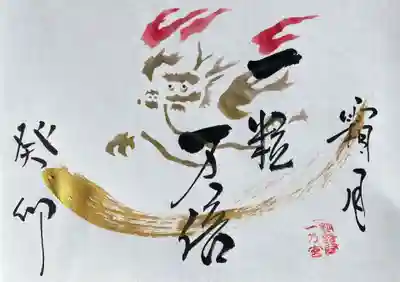 霜月
一粒
万倍
癸卯